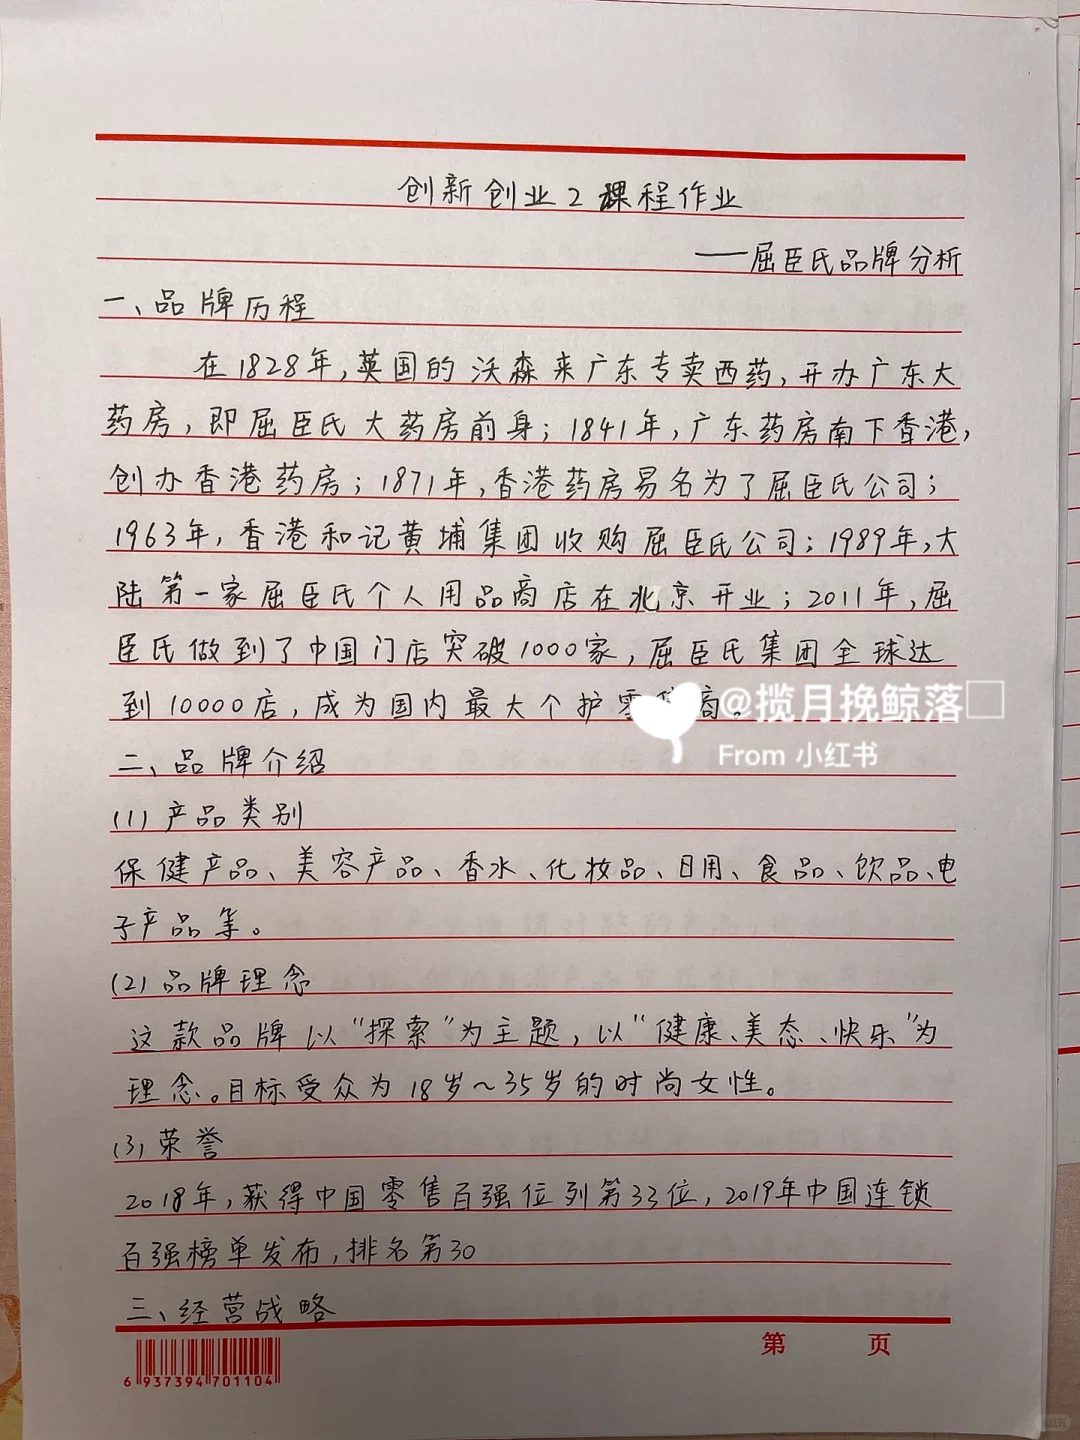 创新创业2课程作业
——屈臣氏品牌分析
一、品牌历程
在1828年,英国的沃森来广东专卖西药,开办广东大
药房,即屈臣氏大药房前身;1841年,广东药房南下香港,
创办香港药房;1871年,香港药房易名为了屈臣氏公司;
1963年,香港和记黄埔集团收购屈臣氏公司;1989年,大
陆第一家屈臣氏个人用品商店在北京开业;2011年,屈
臣氏做到了中国门店突破1000家,屈臣氏集团全球达
到10000店,成为国内最大个护零商。
@揽月挽鲸落
From 小红书
二、品牌介绍
(1)产品类别
保健产品、美容产品、香水、化妆品、日用、食品、饮品、电
子产品等。
(2)品牌理念
这款品牌以“探索”为主题,以“健康、美态、快乐”为
理念。目标受众为18岁~35岁的时尚女性。
(3)荣誉
2018年,获得中国零售百强位列第33位,2019年中国连锁
百强榜单发布,排名第30
三、经营战略
第 页
6 937394 701104